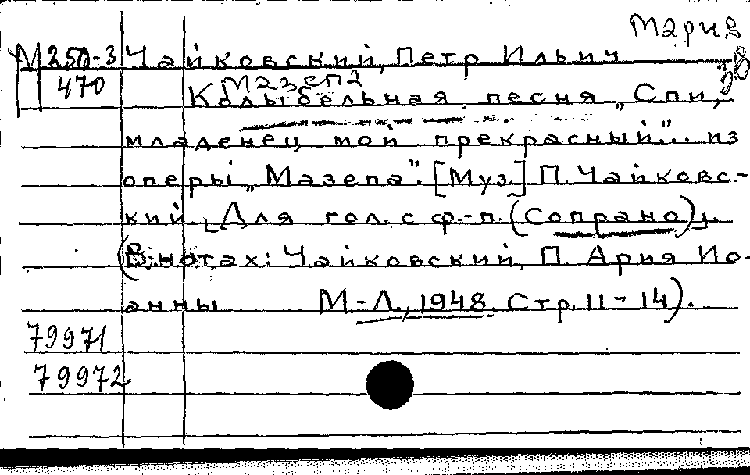 Мария
М 250-3 Чайковский, Петр Ильич
470 Мазепа
Колыбельная песня „Спи,
младенец мой прекрасный"... из
оперы „Мазепа". [Муз.] П. Чайковс-
кий. Для гол. с ф.-п. (Сопрано).
(В нотах: Чайковский, П. Ария Ио-
анны М-Л., 1948. Стр. 11-14).
79971
79972